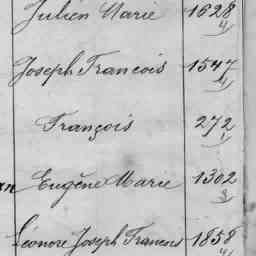 Julien Marie 1628
4
Joseph Francois 1547
4
François 272
1
Eugène Marie 1302
3
Léonore Joseph Francois 1858
4